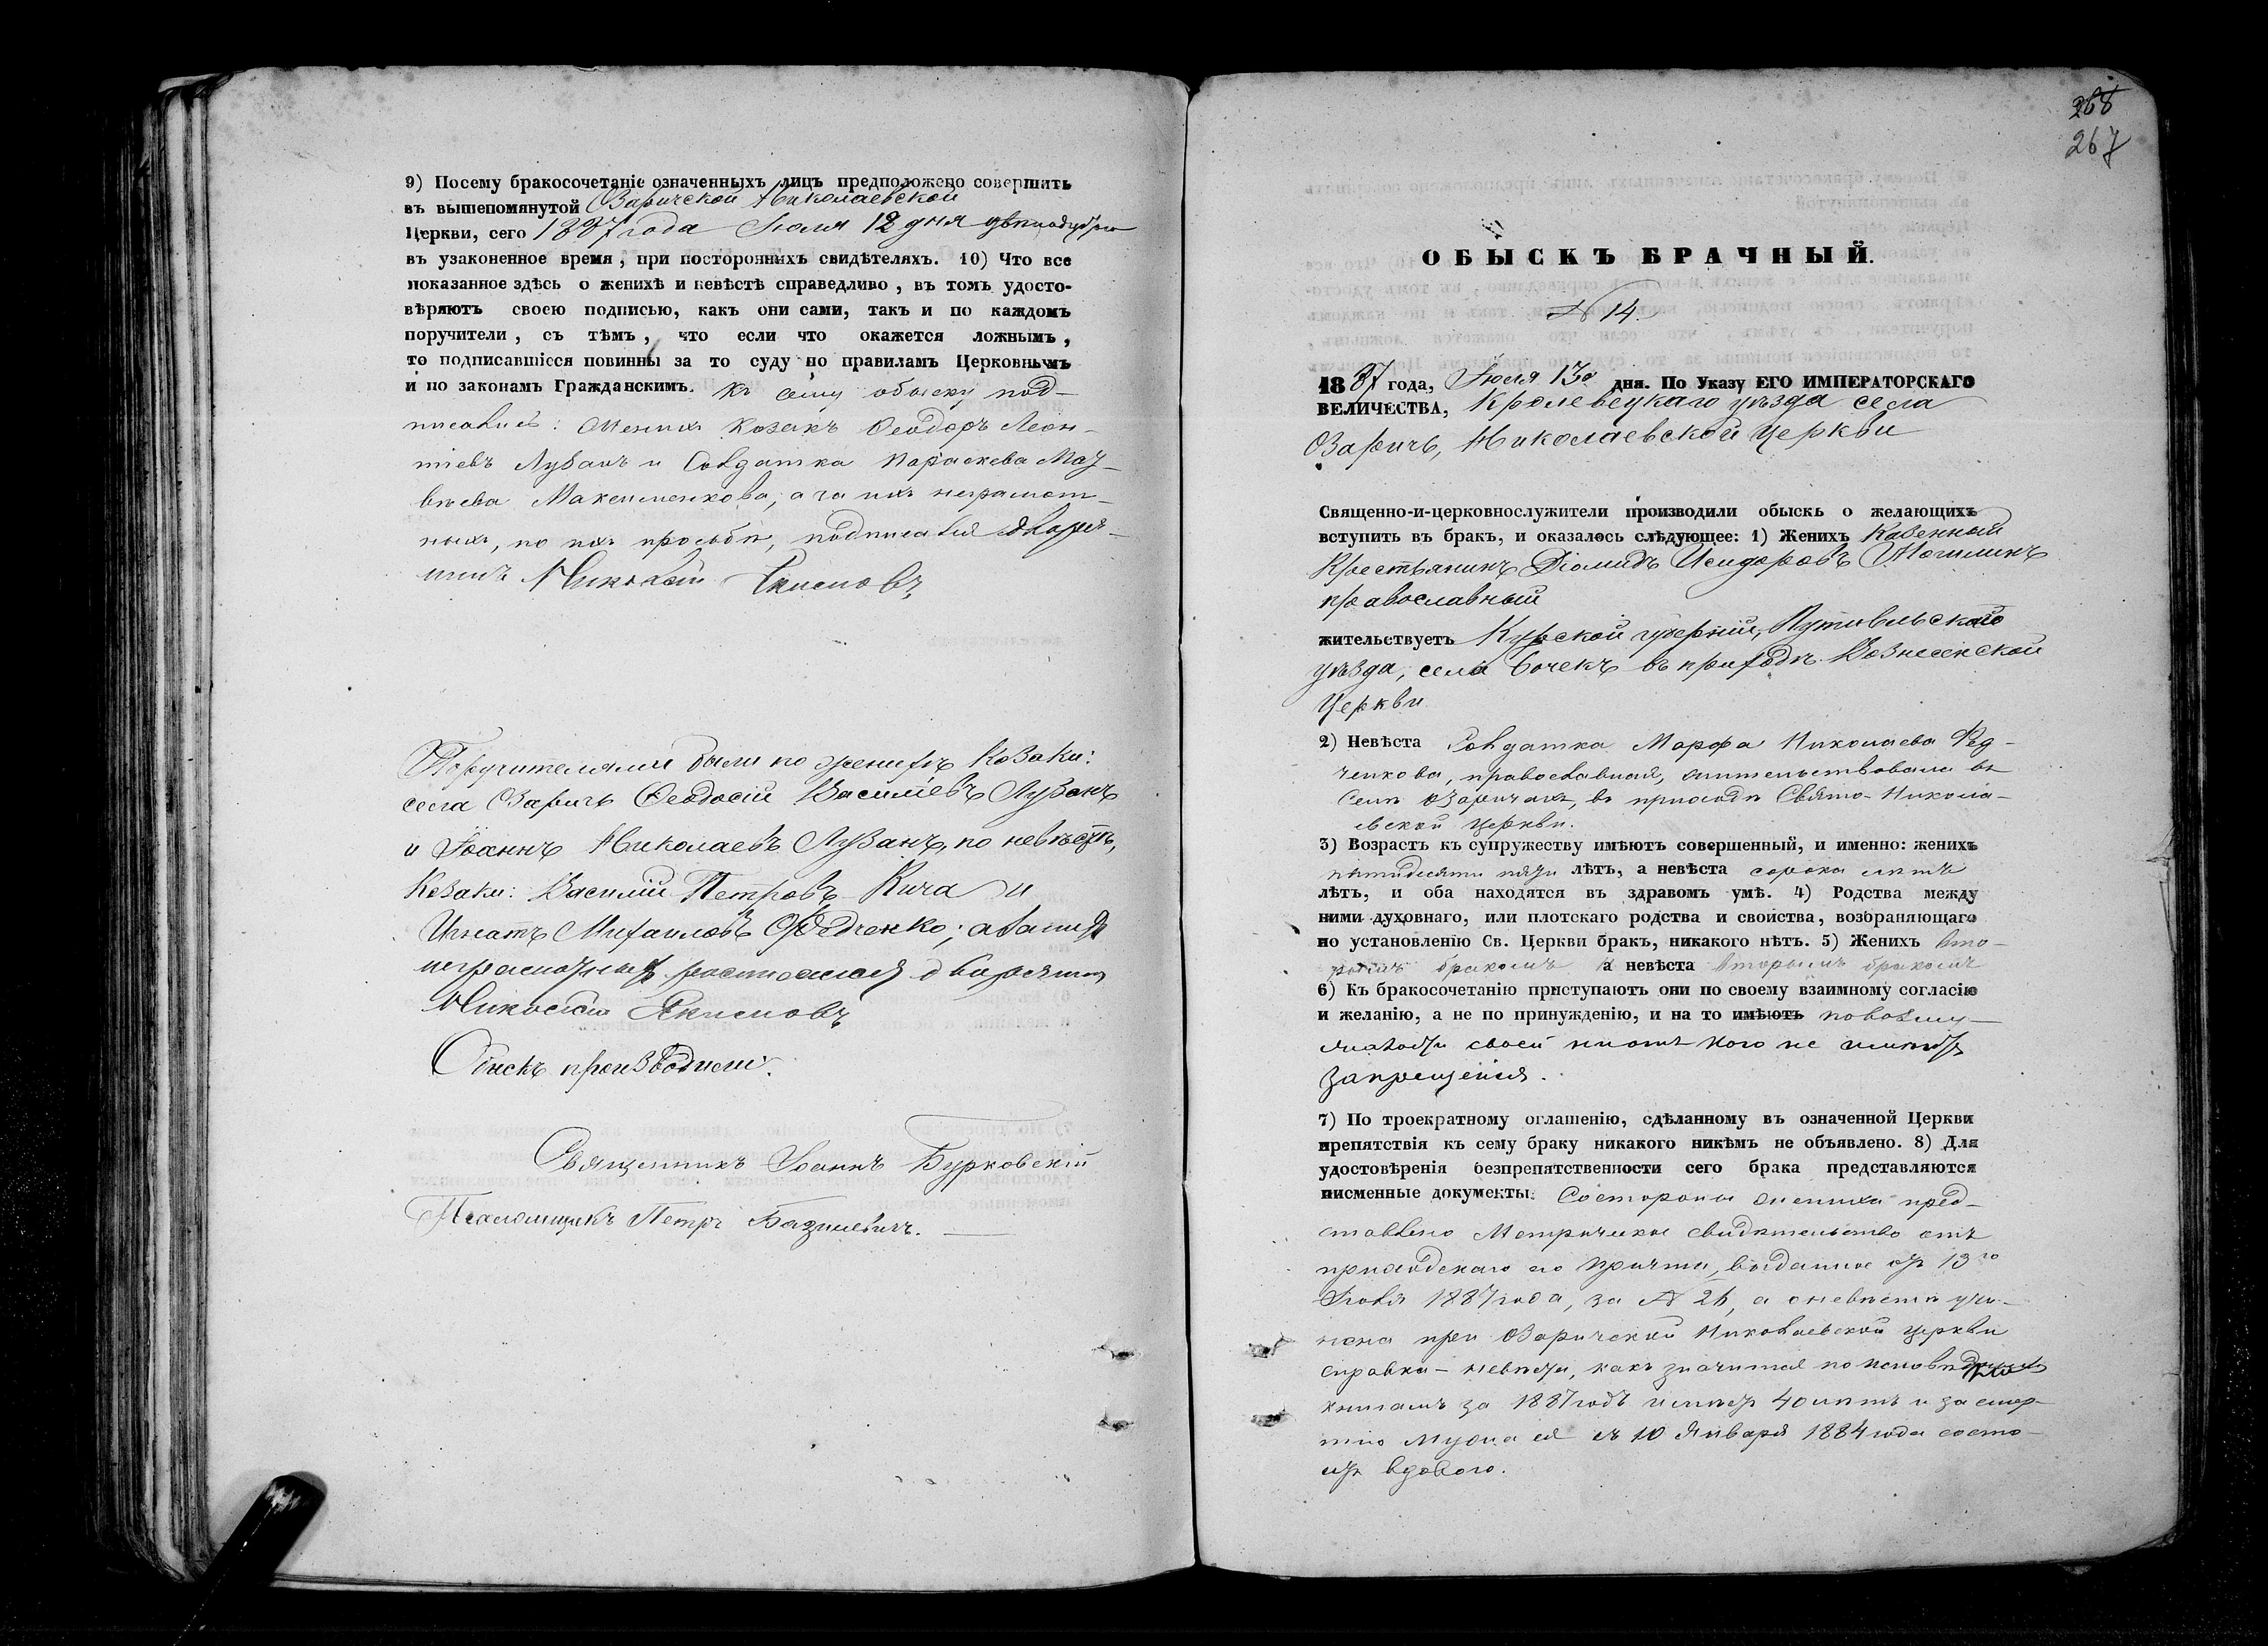 9) Посему бракосочетаніе означенныхъ лицъ предположено совершить
въ вышепомянутой Озаричской Николаевской
Церкви, сего 1887 года Іюля 12 дня
въ узаконенное время, при постороннихъ свидѣтеляхъ. 10) Что все
показанное здѣсь о женихѣ и невѣстѣ справедливо, въ томъ удосто-
вѣряютъ своею подписью, какъ они сами, такъ и по каждомъ
поручители, съ тѣмъ, что если что окажется ложнымъ,
то подписавшіеся повинны за то суду по правиламъ Церковнымъ
и по законамъ Гражданскимъ. Къ сему обыску под-
писались: Женихъ козакъ Ѳеодоръ Леон-
тіевъ Лузанъ и Солдатка Параскева Мат-
вѣева Максименкова, а за ихъ неграмот-
ныхъ, по ихъ просьбѣ, подписался дворя-
нинъ Николай Якимовъ
Поручителями были по женихѣ Козаки:
села Озаричъ Ѳеодосій Василіевъ Лузанъ
и Іоаннъ Николаевъ Лузанъ, по невѣстѣ,
Козаки: Василій Петровъ Кича и
Игнатъ Михаиловъ Ѳедченко; а за нихъ
неграмотныхъ росписался дворянинъ
Николай Якимовъ
Обыскъ производили:
Священникъ Іоаннъ Бурковскій
Псаломщикъ Петръ Базилевичъ.
268
267
ОБЫСКЪ БРАЧНЫЙ.
№ 14.
1887 года, Іюля 13го дня. По Указу ЕГО ИМПЕРАТОРСКАГО
ВЕЛИЧЕСТВА, Кролевецкаго уѣзда села
Озаричъ, Николаевской Церкви
Священно-и-церковнослужители производили обыскъ о желающихъ
вступить въ бракъ, и оказалось слѣдующее: 1) Женихъ Казенный
Крестьянинъ Діомидъ Исидоровъ
православный
жительствуетъ Курской губерніи, Путивльскаго
уѣзда, села Бочекъ въ приходѣ Вознесенской
Церкви
2) Невѣста Солдатка Марфа Николаева Фед-
ченкова, православная, жительствовала въ
селѣ Озаричахъ, въ приходѣ Свято-Никола-
евской церкви.
3) Возрастъ къ супружеству имѣютъ совершенный, и именно: женихъ
пятидесяти пяти лѣтъ, а невѣста сорока лѣтъ
лѣтъ, и оба находятся въ здравомъ умѣ. 4) Родства между
ними духовнаго, или плотскаго родства и свойства, возбраняющаго
по установленію Св. Церкви бракъ, никакого нѣтъ. 5) Женихъ вто-
рымъ бракомъ а невѣста вторымъ бракомъ
6) Къ бракосочетанію приступаютъ они по своему взаимному согласію
и желанію, а не по принужденію, и на то имѣютъ
своей ни отъ кого не имѣютъ
запрещенія.
7) По троекратному оглашенію, сдѣланному въ означенной Церкви
препятствія къ сему браку никакого никѣмъ не объявлено. 8) Для
удостовѣренія безпрепятственности сего брака представляются
писменные документы: Со стороны жениха пред-
ставлено Метрическое свидѣтельство отъ
приходскаго его причта, выданное отъ 13го
Іюля 1887 года, за № 26, а о невѣстѣ учи-
нена при Озаричской Николаевской церкви
справка – невѣста, какъ значится по исповѣднымъ
книгамъ за 1887 годъ имѣетъ 40 лѣтъ и за смер-
тію мужа ея съ 10 Января 1884 года состо-
итъ вдовою.